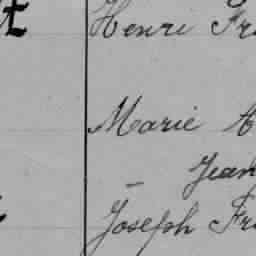 Henri Fr
Marie A
Jean
Joseph Fr